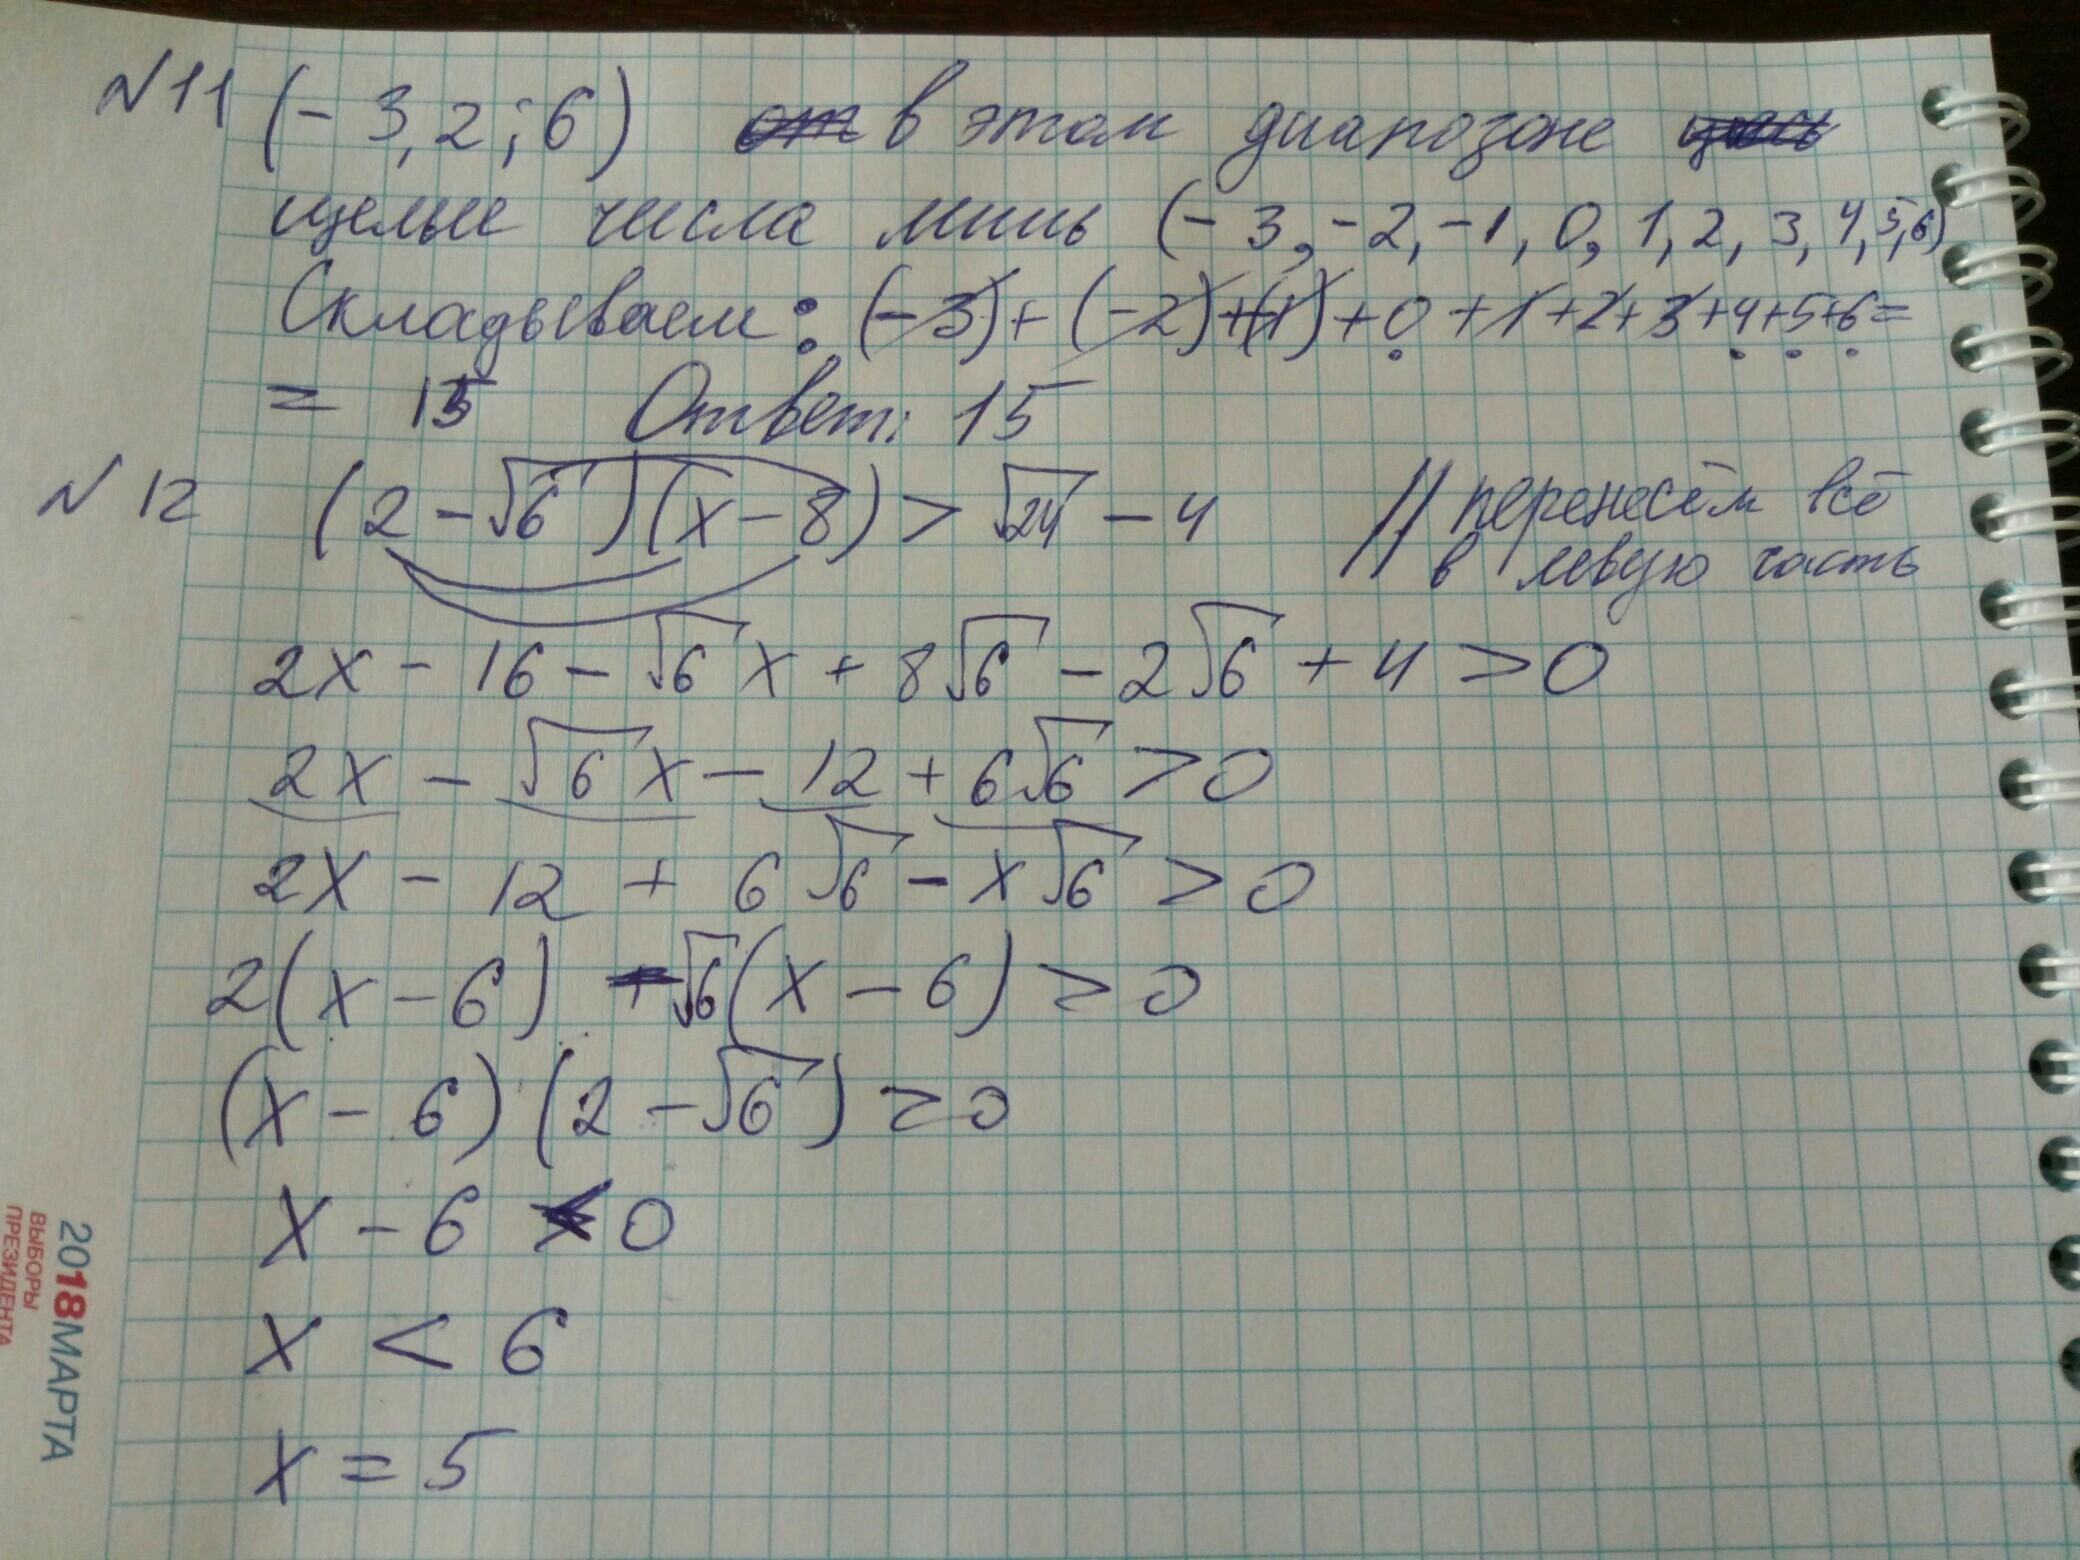 №11 (-3,2;6) в этом диапозоне
целые числа лишь (-3,-2,-1,0,1,2,3,4,5,6)
Складываем: (-3)+(-2)+(-1)+0+1+2+3+4+5+6=
= 15 Ответ: 15
№12 (2-√6)(x-8)>√24-4 // перенесём всё
в левую часть
2x-16-√6x+8√6-2√6+4>0
2x-√6x-12+6√6>0
2x-12+6√6-x√6>0
2(x-6)-√6(x-6)>0
(x-6)(2-√6)>0
x-6<0
x<6
x=5
2018 МАРТА
ВЫБОРЫ
ПРЕЗИДЕНТА